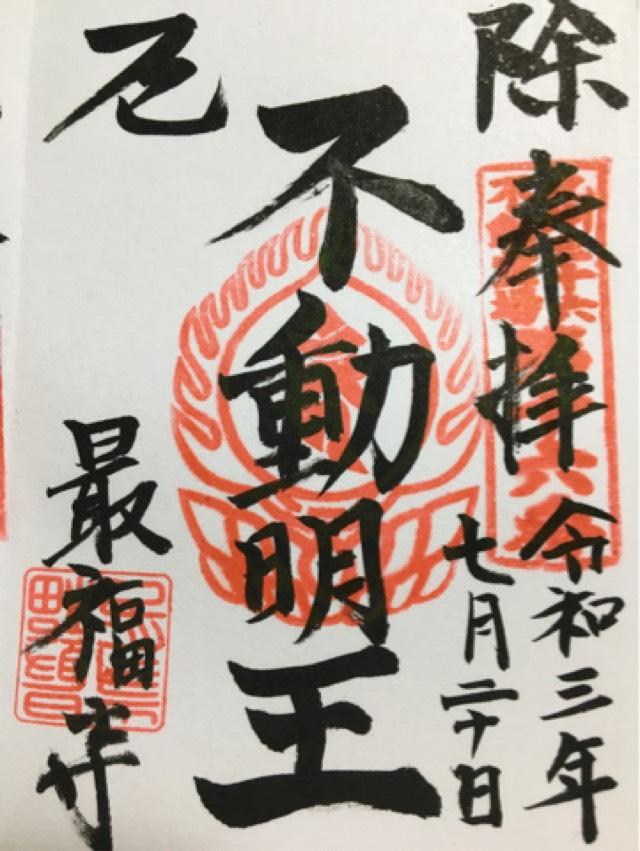 除
奉拝
令和三年
七月二十日
不動明王
厄
最福寺